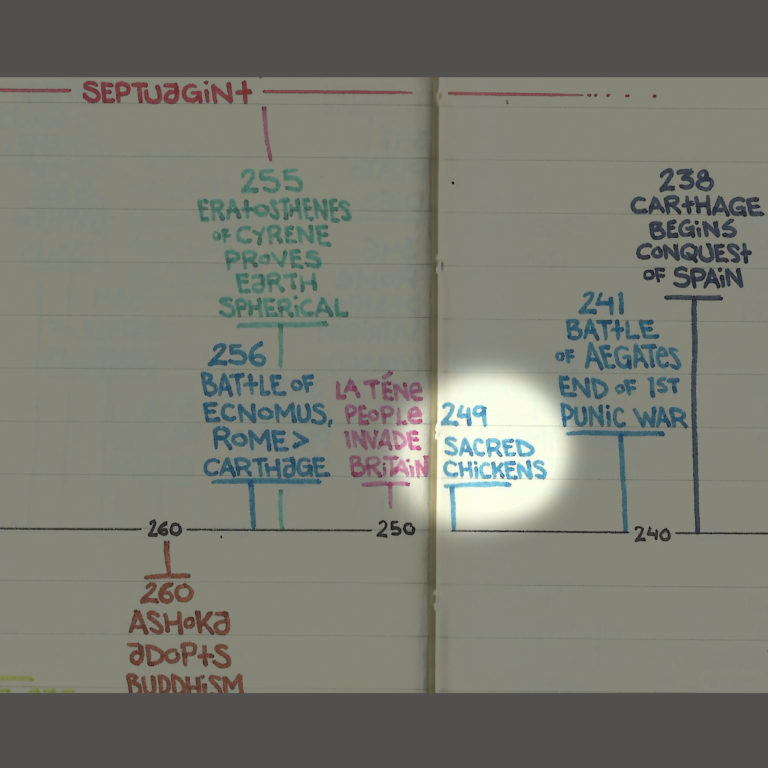 SEPTUAGINT
255
ERATOSTHENES
OF CYRENE
PROVES
EARTH
SPHERICAL
256
BATTLE OF
ECNOMUS,
ROME >
CARTHAGE
LA TÉNE
PEOPLE
INVADE
BRITAIN
249
SACRED
CHICKENS
241
BATTLE
OF AEGATES
END OF 1ST
PUNIC WAR
238
CARTHAGE
BEGINS
CONQUEST
OF SPAIN
260
250
240
260
ASHOKA
ADOPTS
BUDDHISM